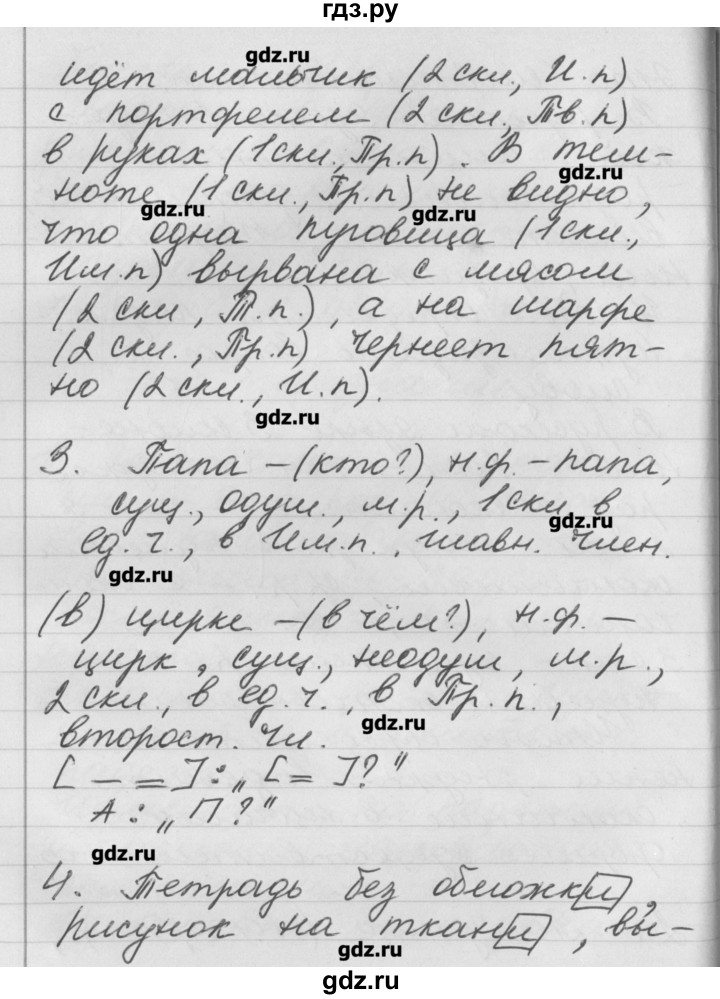 гдз.ру
gdz.ru
идёт мальчик (2 скл., И.п)
с портфелем (2 скл., Тв.п)
в руках (1 скл., Пр.п). В тем-
gdz.ru
ноте (1 скл., Пр.п) не видно,
gdz.ru gdz.ru
что одна пуговица (1 скл.,
Им.п) вырвана с мясом
(2 скл., Т.п.), а на шарфе
(2 скл., Пр.п) чернеет пят-
но (2 скл., И.п).
gdz.ru
3. Папа – (кто?), н.ф. – папа,
сущ., одуш., м.р., 1 скл, в
gdz.ru
ед. ч., в Им.п., главн. член.
gdz.ru
(в) цирке – (в чём?), н.ф. –
цирк, сущ., неодуш, м.р.,
2 скл., в ед. ч., в Пр. п.,
gdz.ru
второст. чл.
[ – = ] : „ [ = ]? “
А : „ П? “
gdz.ru
4. Тетрадь без обложки,
рисунок на ткани, вы-
gdz.ru
gdz.ru